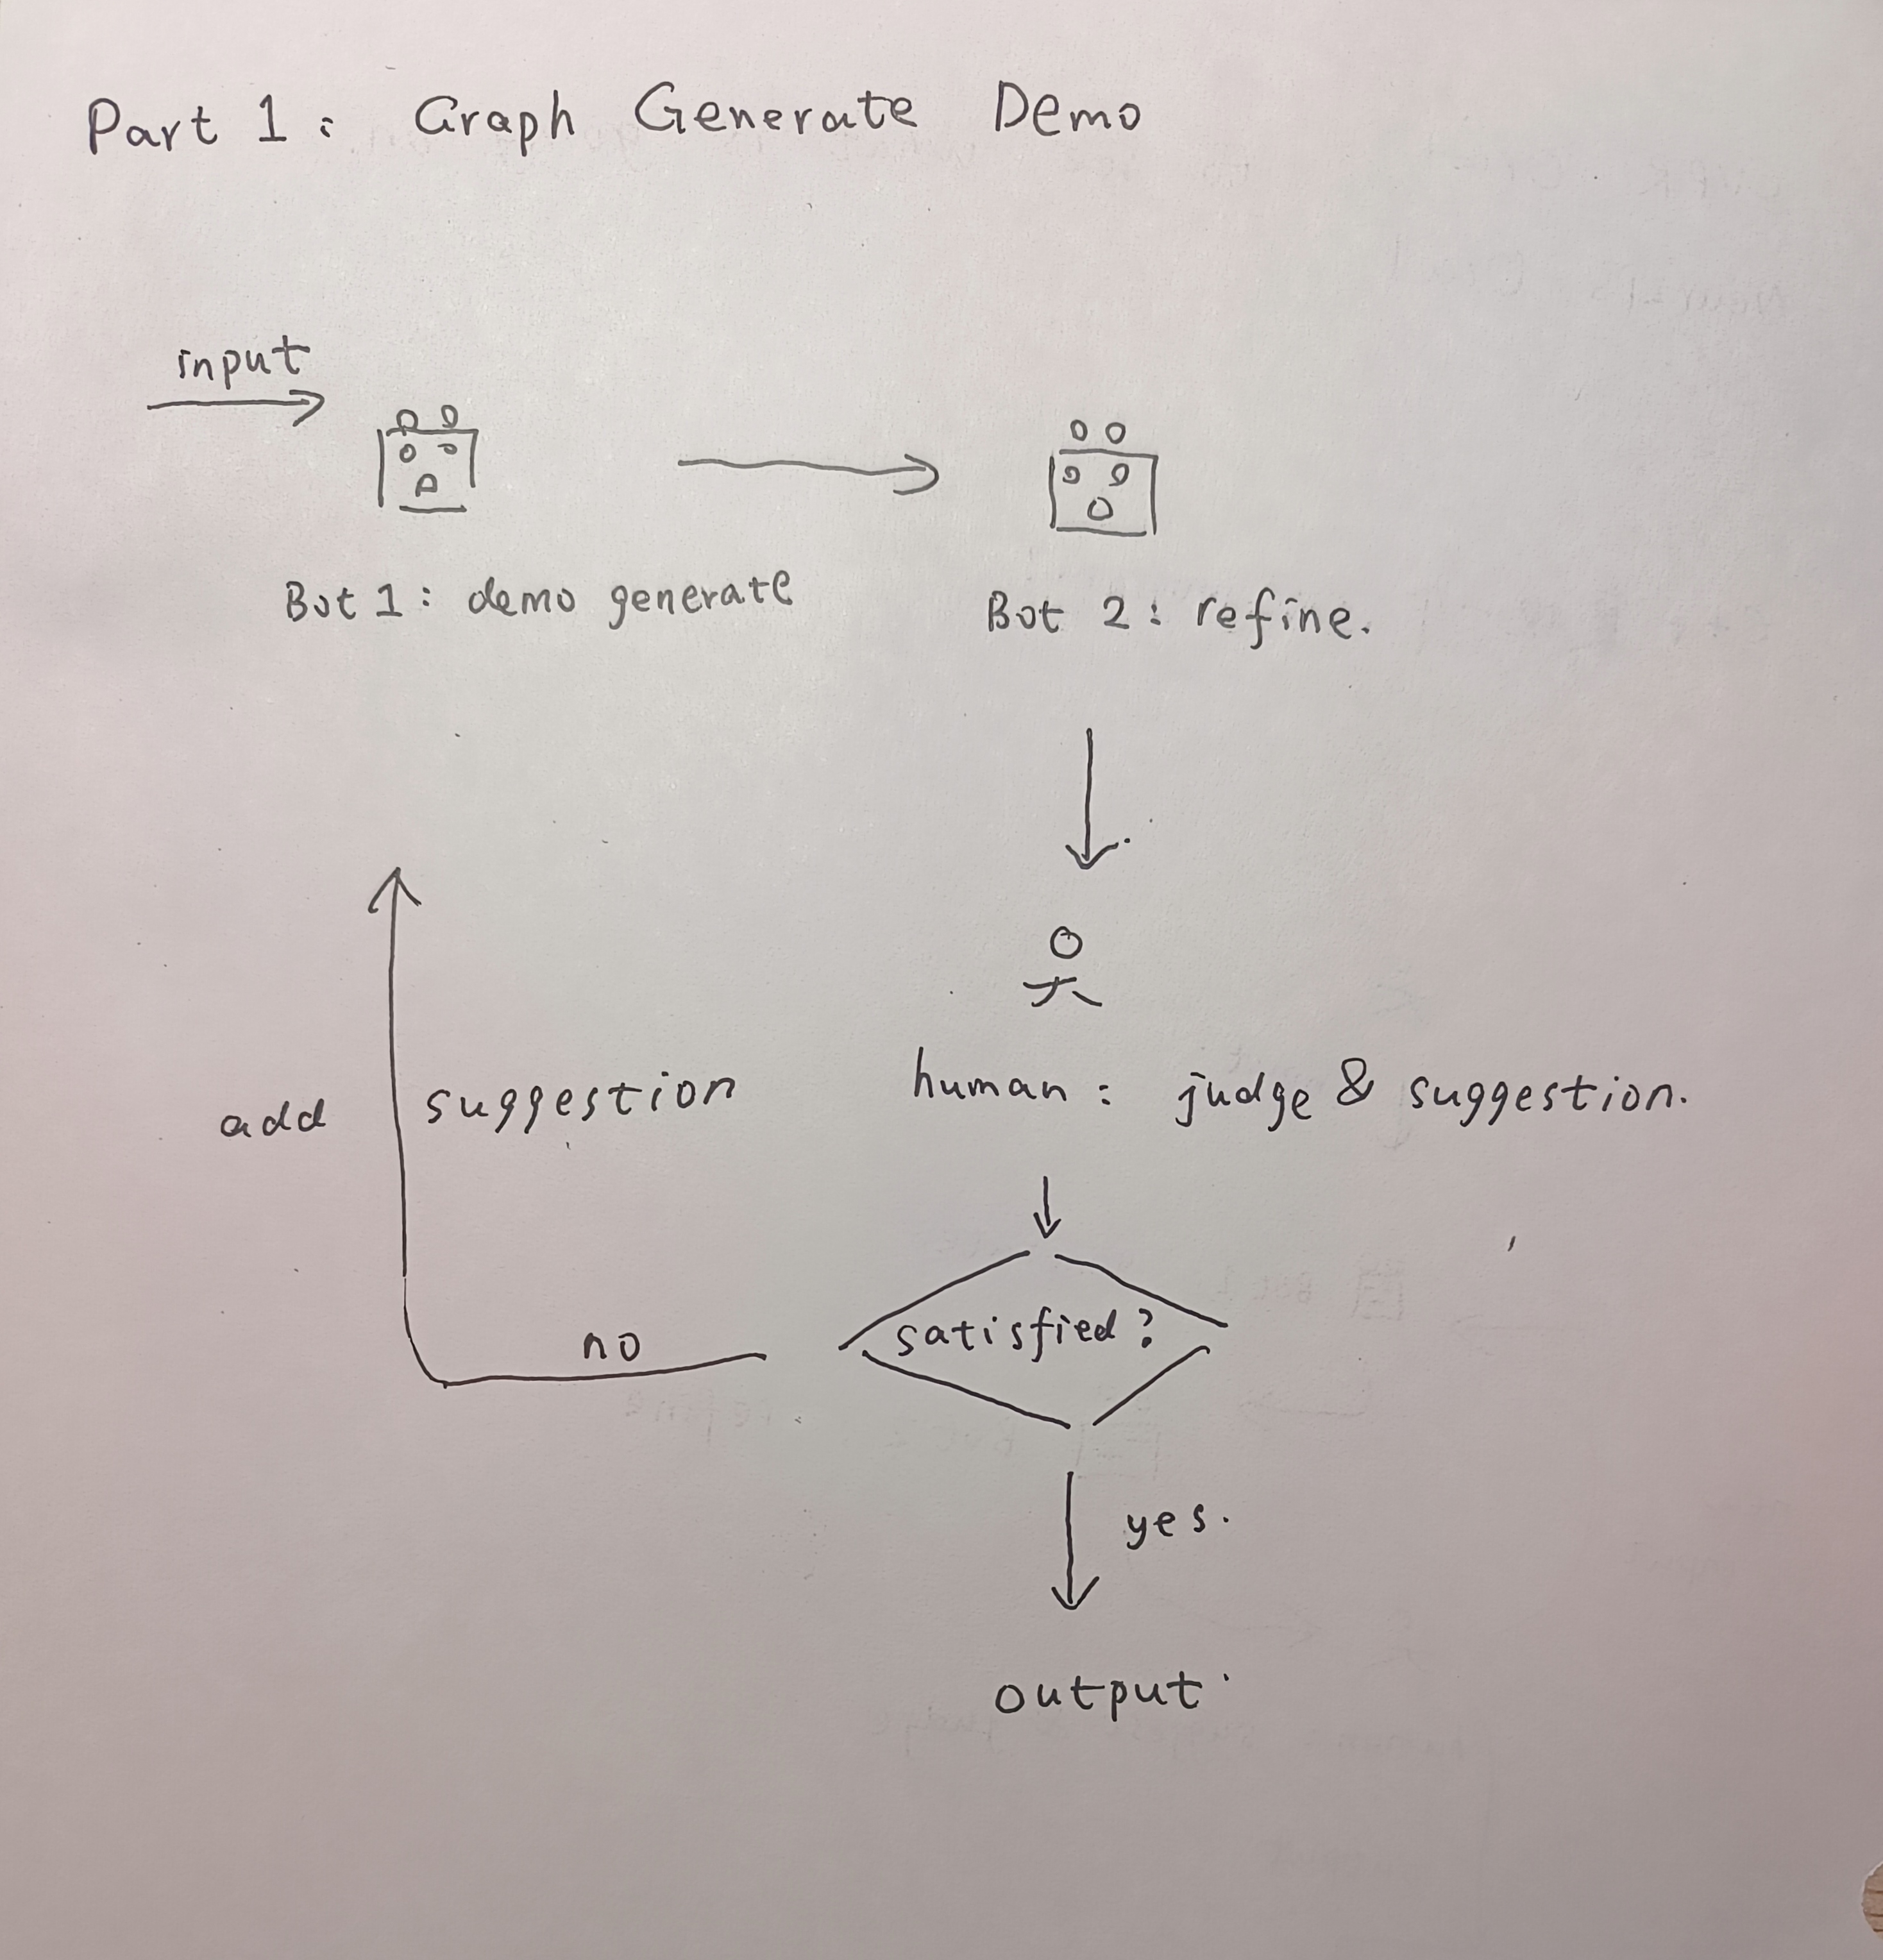 Part 1: Graph Generate Demo
input
Bot 1: demo generate
Bot 2: refine.
human: judge & suggestion.
add suggestion
satisfied?
no
yes.
output.